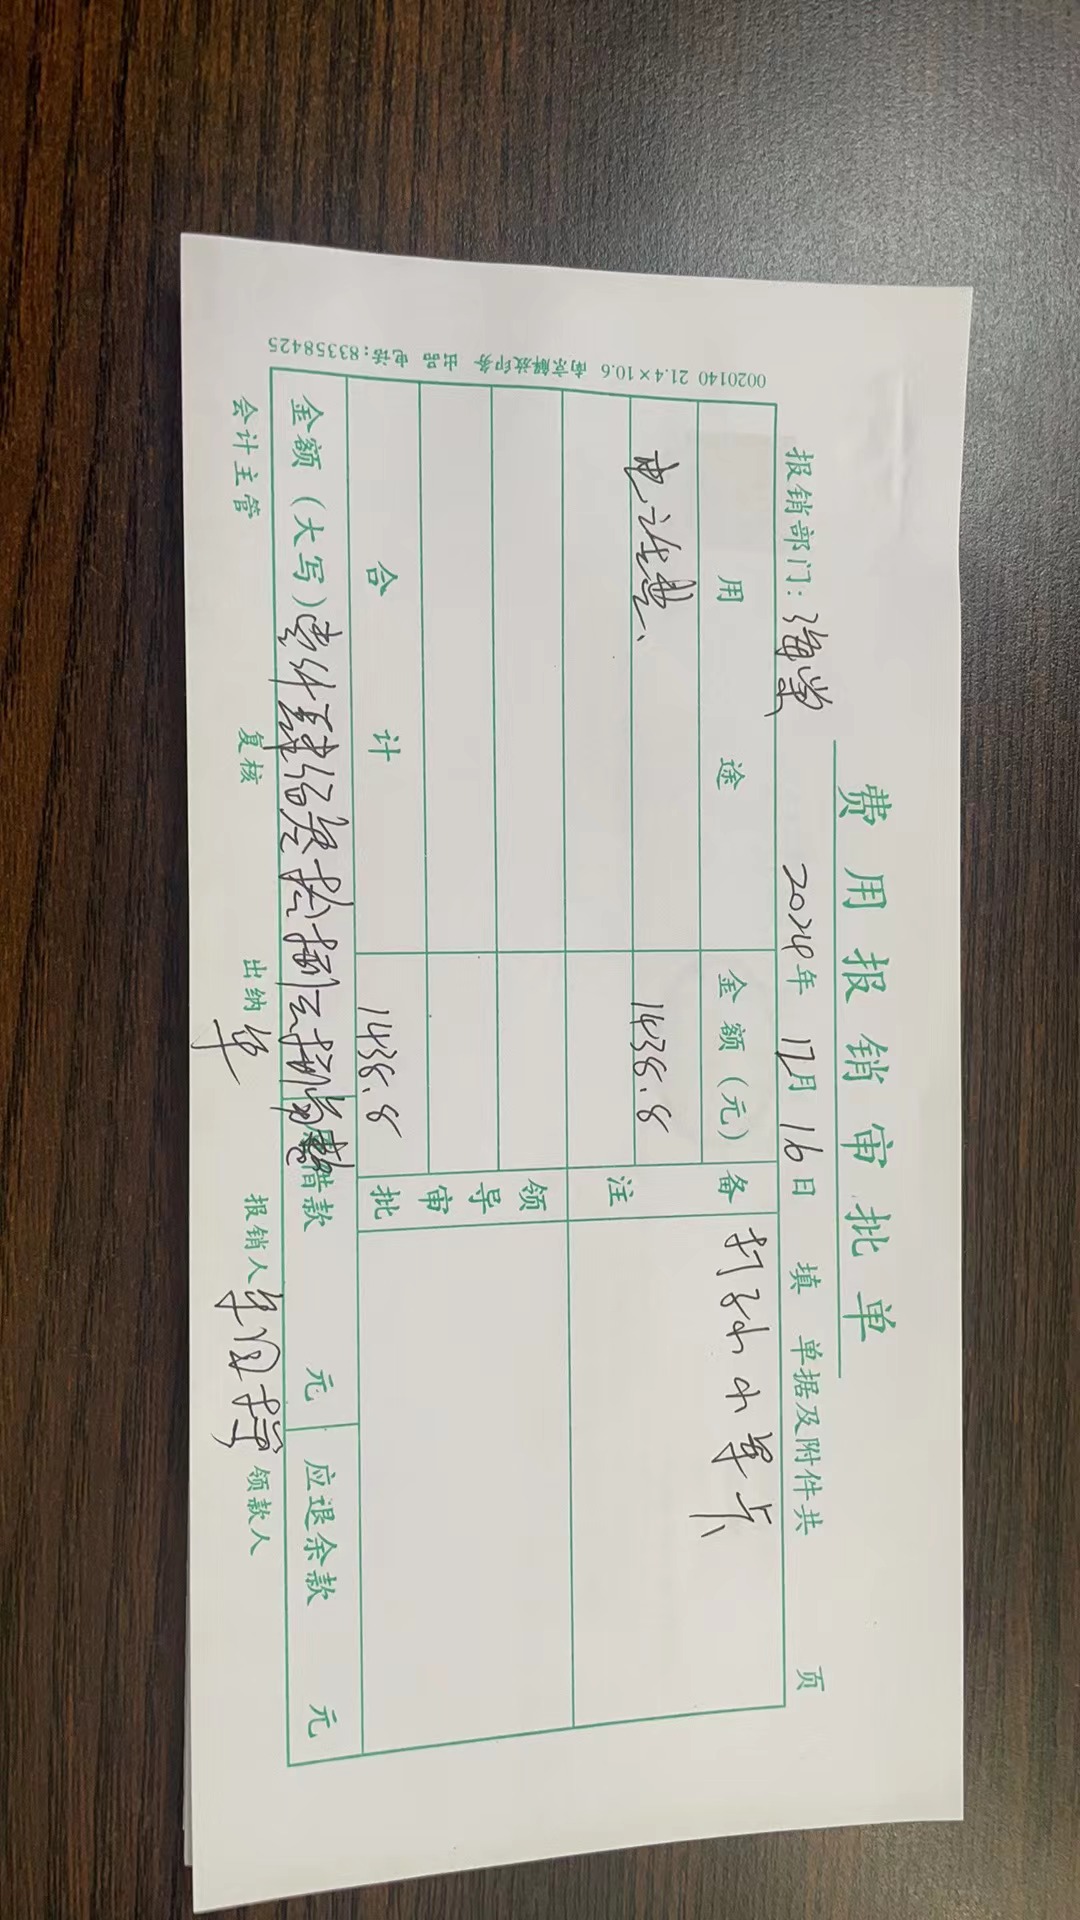 费用报销审批单
报销部门：海棠 2024年 12月 16日 填 单据及附件共 页
用途 金额（元） 备注
电话费、 1438.8
打 小单卡
领导审批
合计 1438.8
金额（大写）壹仟肆佰叁拾捌元捌角整 原借款 元 应退余款 元
会计主管 复核 出纳 报销人 领款人
0020140 21.4×10.6 南京解放印务 出品 电话：83358425